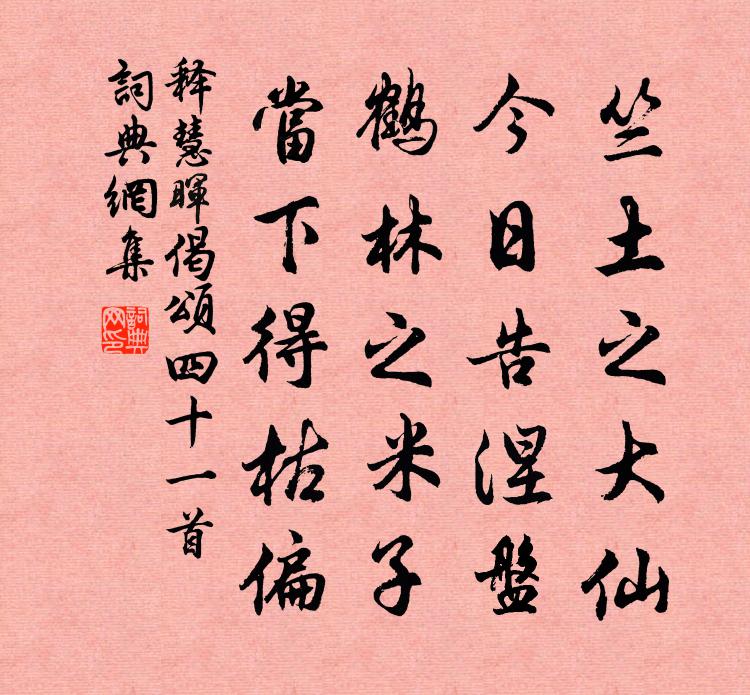 竺土之大仙
今日告涅盤
鶴林之米子
當下得枯偏
释慧暉偈頌四十一首
詞典網集
詞典網印